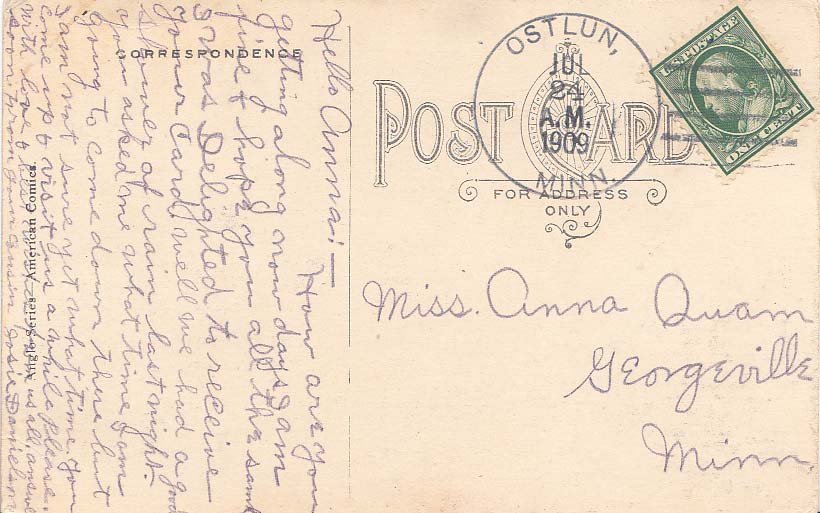 CORRESPONDENCE
Hello Anna:—
How are you
getting along now days I am
fine & hope you all the same
I was Delighted to receive
your card, well we had a good
shower of rain last night.
you asked me what time I am
going to come down there but
I am not sure yet what time. you
come up & visit us a while please.
with love & best from us all, answer
soon. from your cousin Josie Danielson
Anglo Series American Comics.
POST CARD
FOR ADDRESS
ONLY
OSTLUN,
JUL
24
A.M.
1909
MINN.
U.S. POSTAGE
ONE CENT
Miss. Anna Quam
Georgeville
Minn.